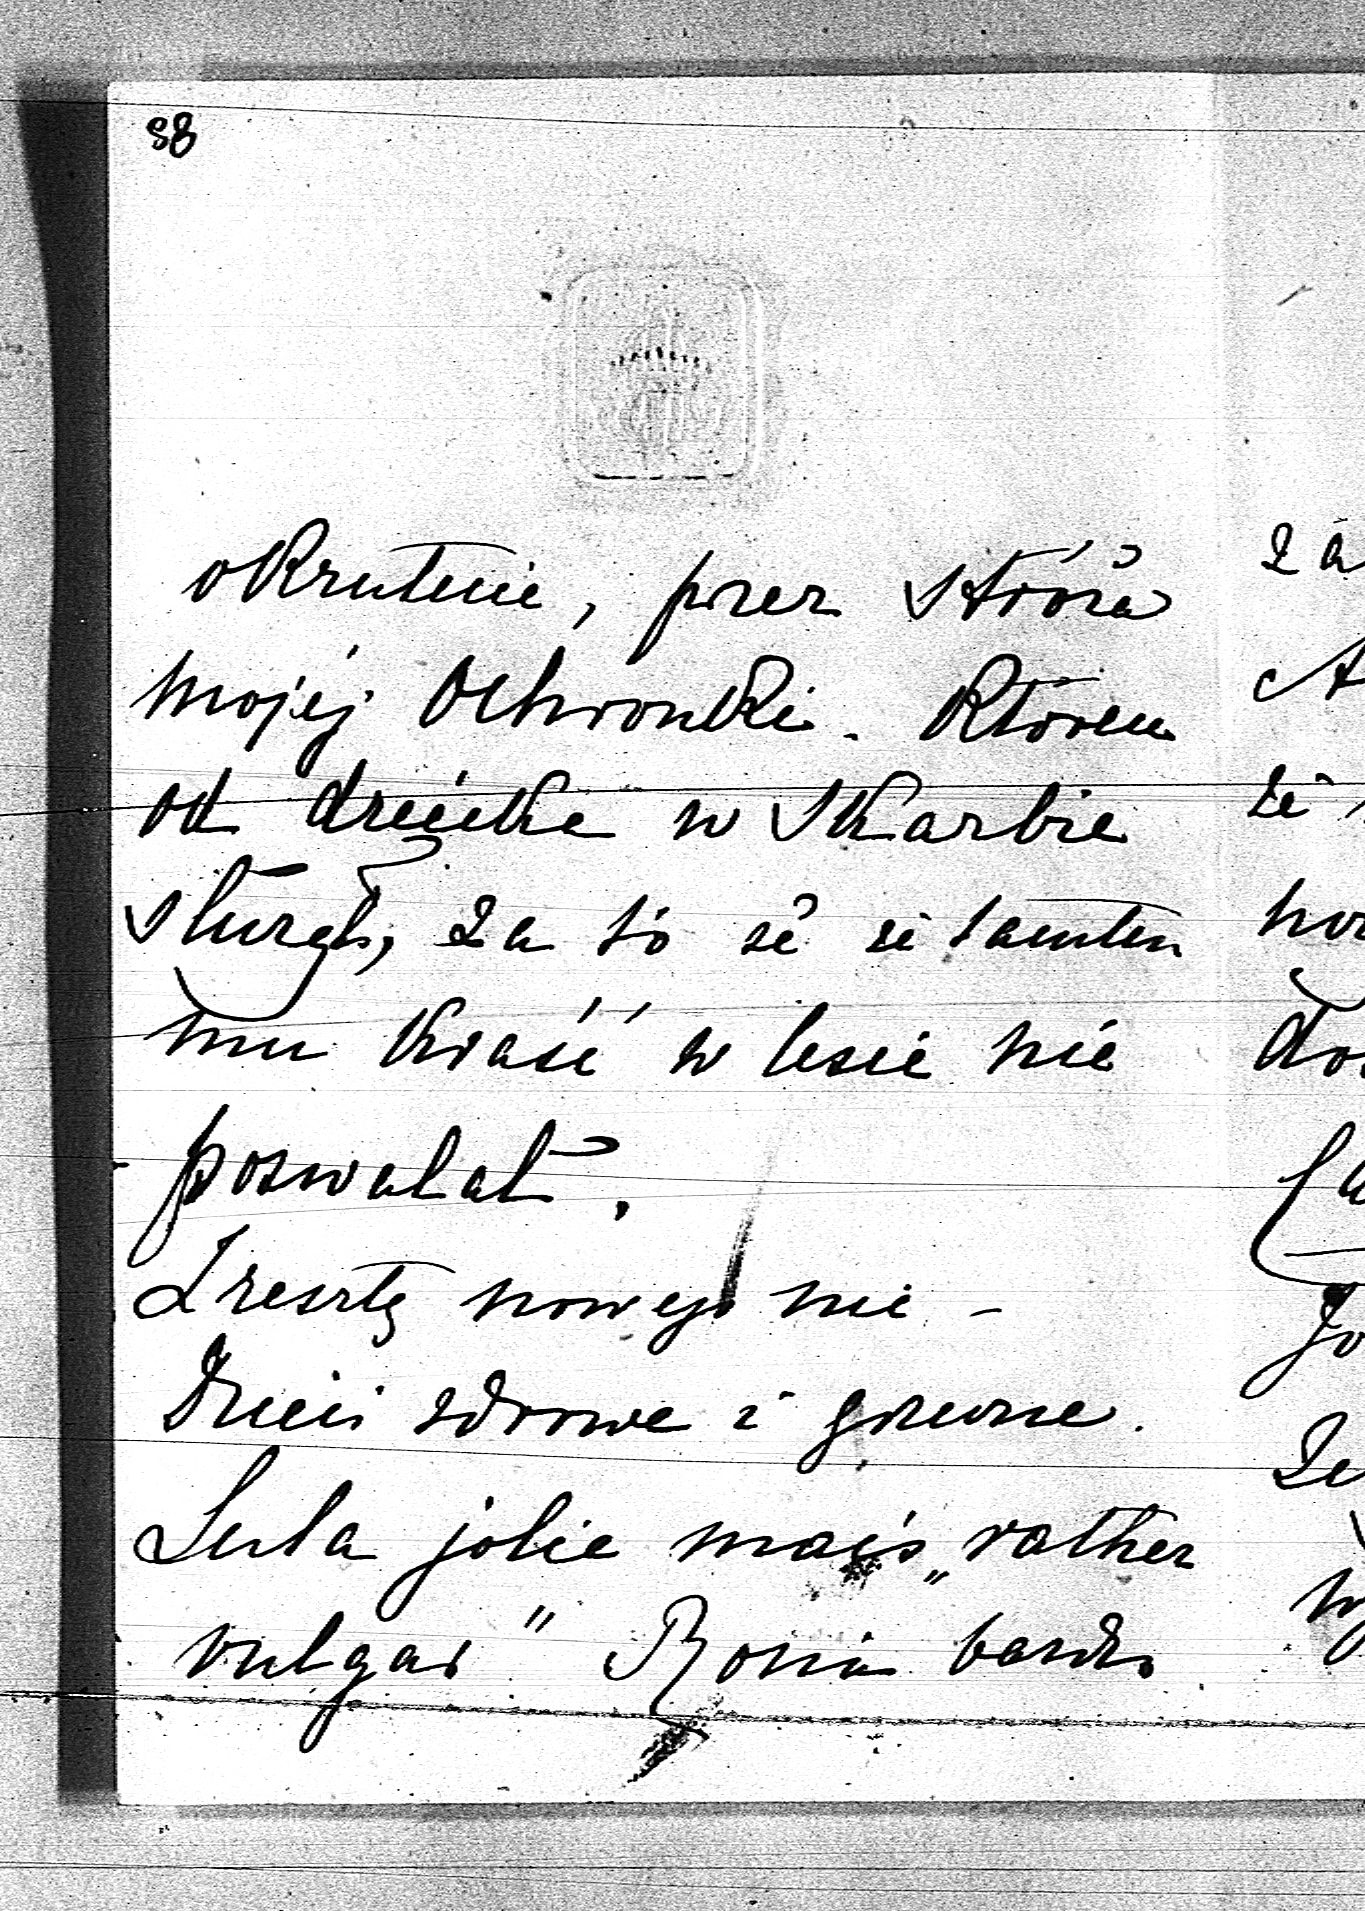 88
okrutnie, przez stróża
mojej Ochronki. Któren
od dziecka w Skarbie
służył, za to że że tamten
mu kraść w lesie nie
pozwalał.
Zresztą nowego nic –
Dzieci zdrowe i grzeczne.
jolie mais „rather
vulgar" Rozia bardzo
za
że